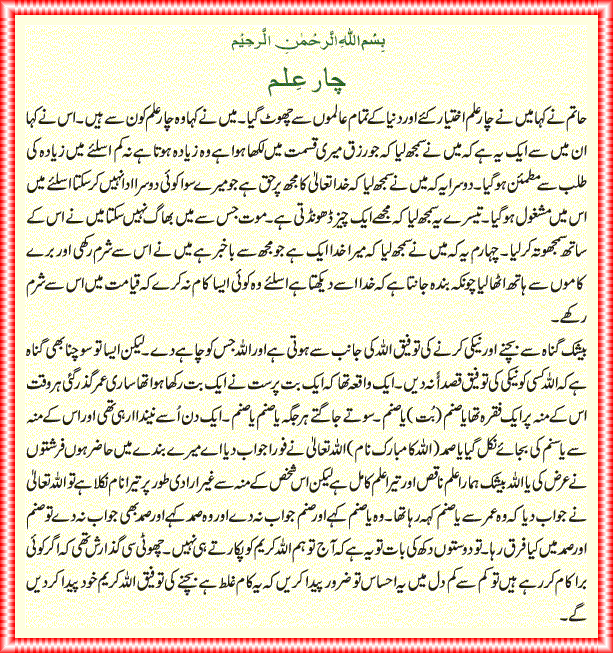 بِسْمِ اللّٰہِ الرَّحْمٰنِ الرَّحِیْمِ
چار عِلم
حاتم نے کہا میں نے چار علم اختیار کئے اور دنیا کے تمام عالموں سے چھوٹ گیا۔ میں نے کہا وہ چار علم کون سے ہیں۔ اس نے کہا
ان میں سے ایک یہ ہے کہ میں نے سمجھ لیا کہ جو رزق میری قسمت میں لکھا ہوا ہے وہ زیادہ ہوتا ہے نہ کم اسلئے میں زیادہ کی
طلب سے مطمئن ہو گیا۔ دوسرا یہ کہ میں نے سمجھ لیا کہ خدا تعالیٰ کا مجھ پر حق ہے جو میرے سوا کوئی دوسرا ادا نہیں کر سکتا اسلئے میں
اس میں مشغول ہو گیا۔ تیسرے یہ سمجھ لیا کہ مجھے ایک چیز ڈھونڈتی ہے۔ موت جس سے میں بھاگ نہیں سکتا میں نے اس کے
ساتھ سمجھوتہ کر لیا۔ چہارم یہ کہ میں نے سمجھ لیا کہ میرا خدا ایک ہے جو مجھ سے باخبر ہے میں نے اس سے شرم رکھی اور برے
کاموں سے ہاتھ اٹھا لیا چونکہ بندہ جانتا ہے کہ خدا اسے دیکھتا ہے اسلئے وہ کوئی ایسا کام نہ کرے کہ قیامت میں اس سے شرم
رکھے۔
بیشک گناہ سے بچنے اور نیکی کرنے کی توفیق اللہ کی جانب سے ہوتی ہے اور اللہ جس کو چاہے دے۔ لیکن ایسا تو سوچنا بھی گناہ
ہے کہ اللہ کسی کو نیکی کی توفیق قصداً نہ دیں۔ ایک واقعہ تھا کہ ایک بت پرست نے ایک بت رکھا ہوا تھا ساری عمر گذر گئی ہر وقت
اس کے منہ پر ایک فقرہ تھا یا صنم (بُت) یا صنم۔ سوتے جاگتے ہر جگہ یا صنم یا صنم۔ ایک دن اُسے نیند آ رہی تھی اور اس کے منہ
سے یا سنم کی بجائے نکل گیا یا صمد (اللہ کا مبارک نام) اللہ تعالیٰ نے فورا جواب دیا اے میرے بندے میں حاضر ہوں فرشتوں
نے عرض کی یا اللہ بیشک ہمارا علم ناقص اور تیرا علم کامل ہے لیکن اس شخص کے منہ سے غیر ارادی طور پر تیرا نام نکلا ہے تو اللہ تعالیٰ
نے جواب دیا کہ وہ عمر سے یا صنم کہہ رہا تھا۔ وہ یا صنم کہے اور صنم جواب نہ دے اور وہ صمد کہے اور صمد بھی جواب نہ دے تو صنم
اور صمد میں کیا فرق رہا۔ تو دوستوں دکھ کی بات تو یہ ہے کہ آج تو ہم اللہ کریم کو پکارتے ہی نہیں۔ چھوٹی سی گذارش تھی کہ اگر کوئی
برا کام کر رہے ہیں تو کم سے کم دل میں یہ احساس تو ضرور پیدا کریں کہ یہ کام غلط ہے بچنے کی توفیق اللہ کریم خود پیدا کر دیں
گے۔